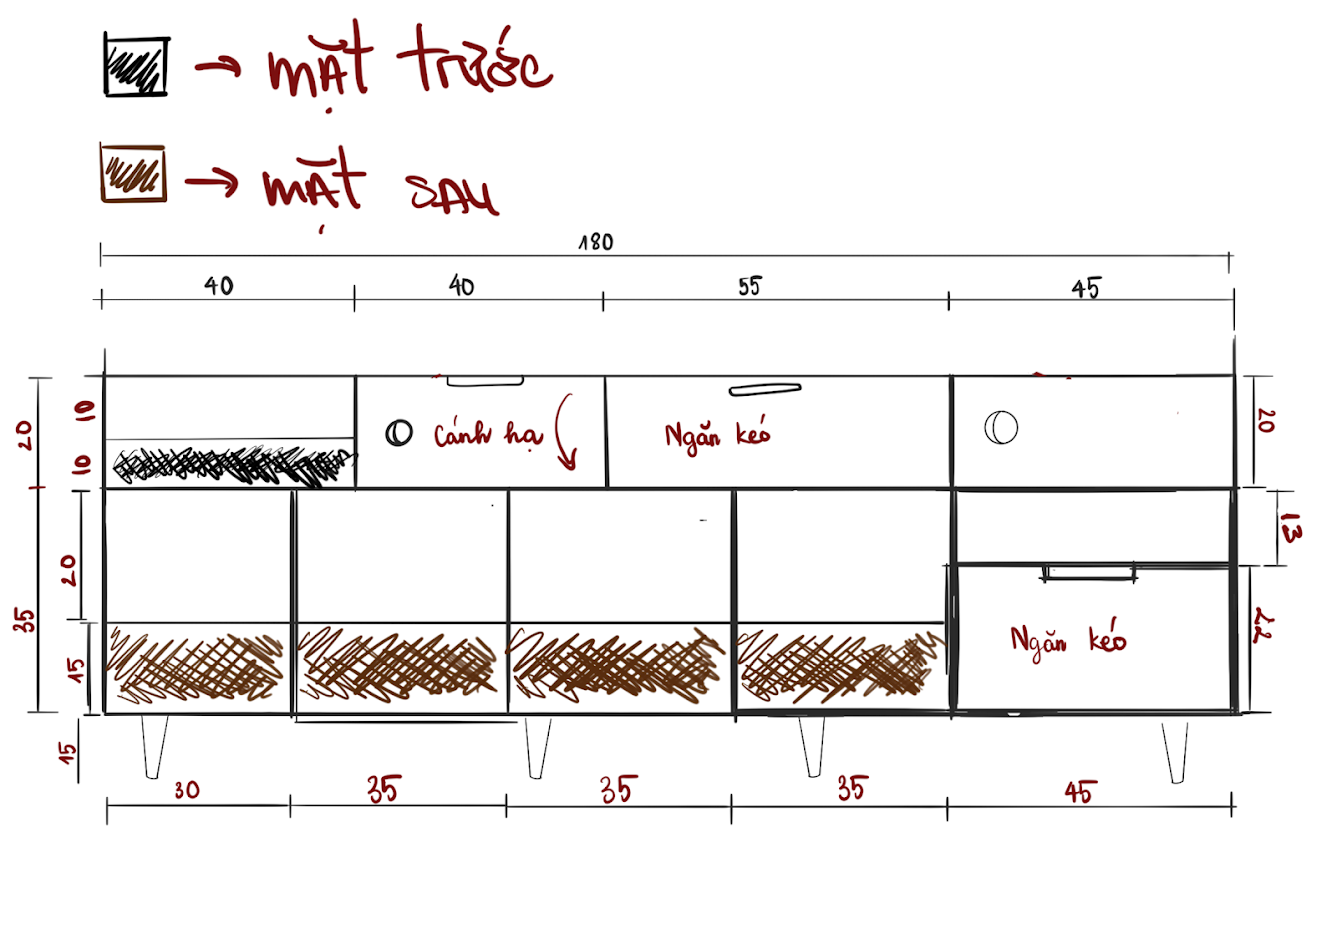 mặt trước
mặt sau
180
40 40 55 45
20 10 10 Cánh hạ Ngăn kéo 20
13
35 20 15 Ngăn kéo 22
15
30 35 35 35 45